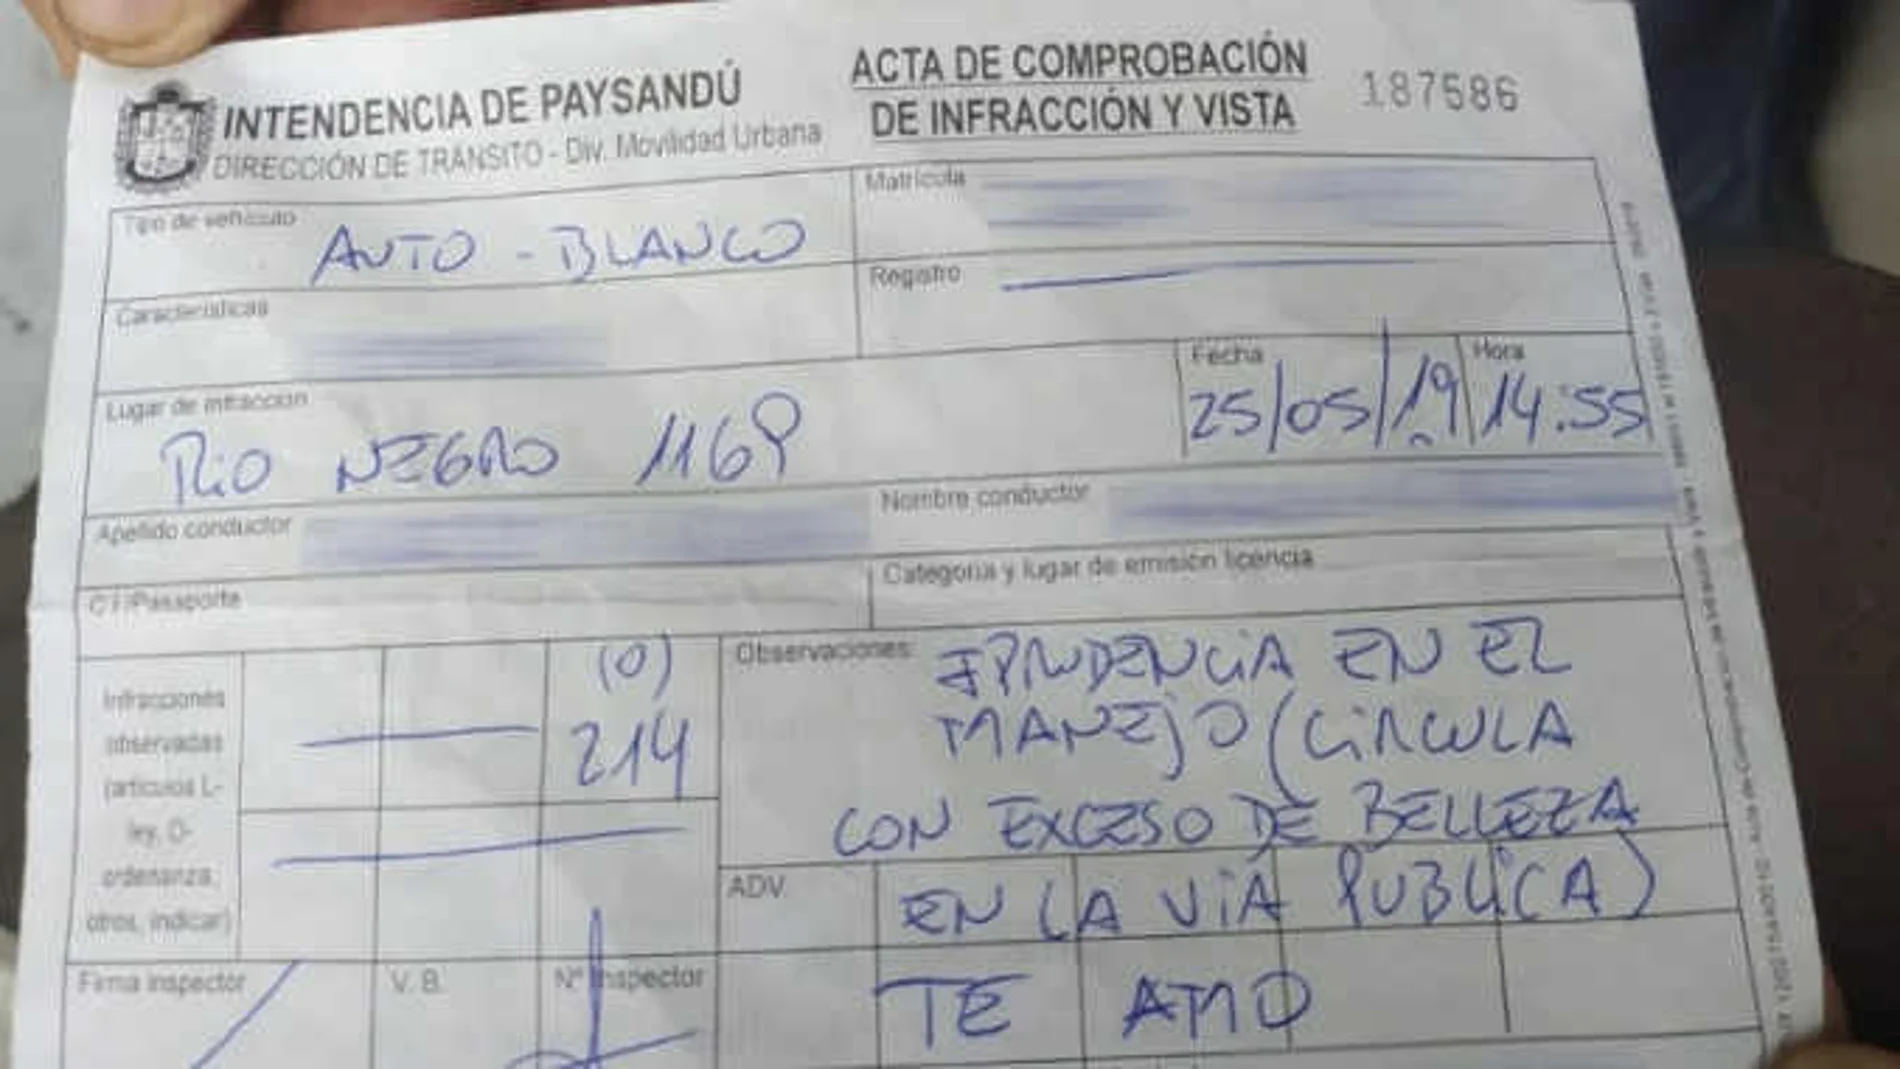 INTENDENCIA DE PAYSANDÚ
DIRECCIÓN DE TRÁNSITO - Div. Movilidad Urbana
ACTA DE COMPROBACIÓN
DE INFRACCIÓN Y VISTA
187586
Tipo de vehículo
AUTO - BLANCO
Matrícula
Características
Registro
Lugar de infracción
RIO NEGRO 1169
Fecha
25/05/19
Hora
14:55
Apellido conductor
Nombre conductor
C.I/Pasaporte
Categoría y lugar de emisión licencia
Infracciones
observadas
(artículos L-
ley, O-
ordenanza,
otros, indicar)
(0)
214
Observaciones:
IPRUDENCIA EN EL
MANEJO (CIRCULA
CON EXCESO DE BELLEZA
ADV.
EN LA VIA PUBLICA)
Firma inspector
V. B.
Nº Inspector
TE AMO